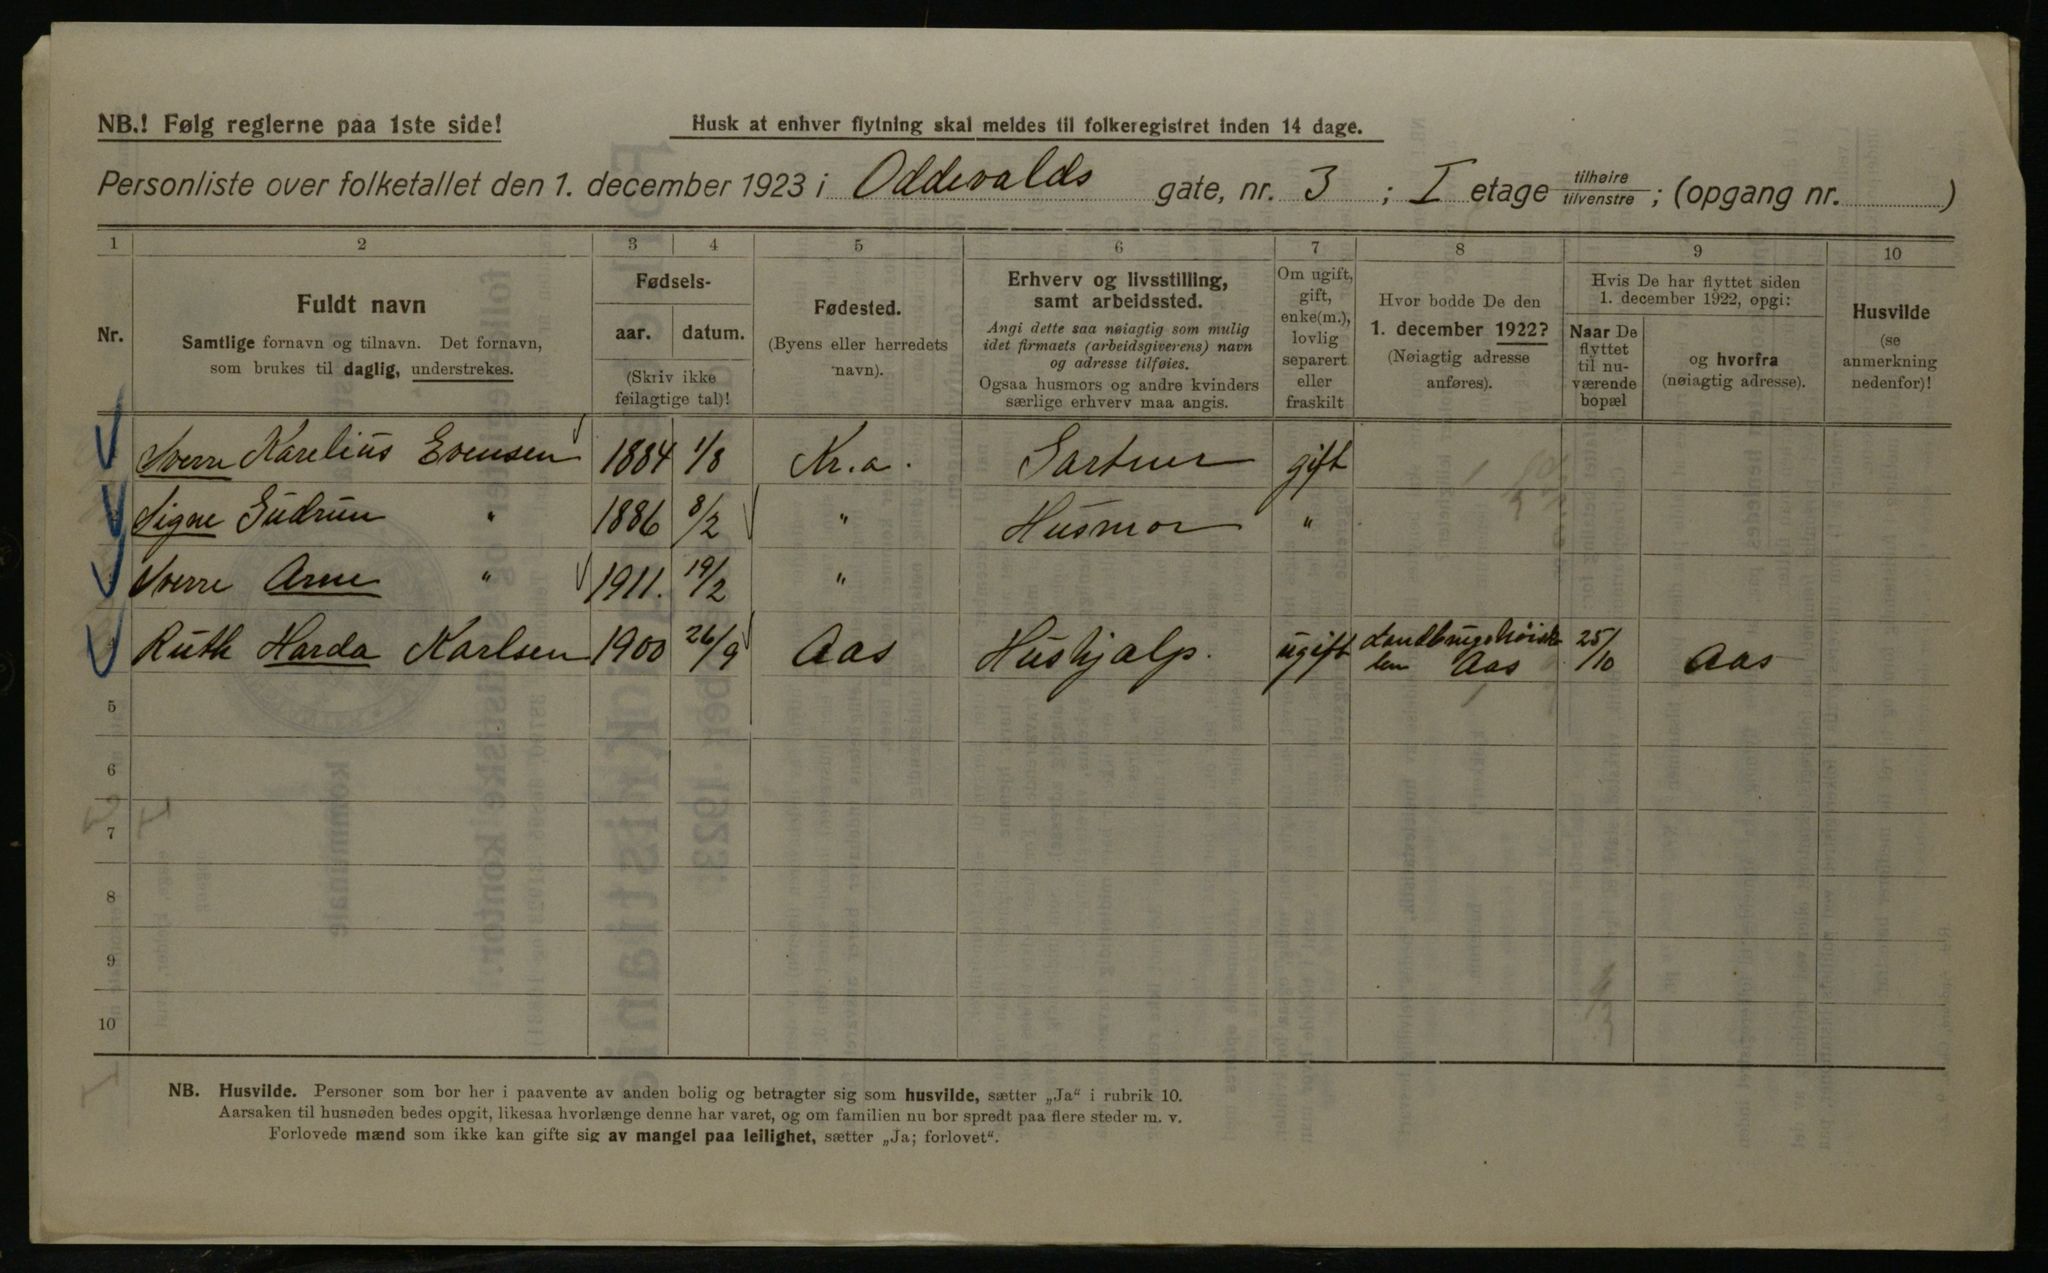 NB.! Følg reglerne paa 1ste side!
Husk at enhver flytning skal meldes til folkeregistret inden 14 dage.
Personliste over folketallet den 1. december 1923 i Oddevalds gate, nr. 3 ; I etage tilhøire / tilvenstre ; (opgang nr. )
1 2 3 4 5 6 7 8 9 10
Nr.
Fuldt navn
Samtlige fornavn og tilnavn. Det fornavn,
som brukes til daglig, understrekes.
Fødsels-
aar. datum.
(Skriv ikke
feilagtige tal)!
Fødested.
(Byens eller herredets
navn).
Erhverv og livsstilling,
samt arbeidssted.
Angi dette saa nøiagtig som mulig
idet firmaets (arbeidsgiverens) navn
og adresse tilføies.
Ogsaa husmors og andre kvinders
særlige erhverv maa angis.
Om ugift,
gift,
enke(m.),
lovlig
separert
eller
fraskilt
Hvor bodde De den
1. december 1922?
(Nøiagtig adresse
anføres).
Hvis De har flyttet siden
1. december 1922, opgi:
Naar De
flyttet
til nu-
værende
bopæl
og hvorfra
(nøiagtig adresse).
Husvilde
(se
anmerkning
nedenfor)!
Sverre Karelius Evensen 1884 1/8 Kr.a. Gartner gift
Signe Gudrun " 1886 8/2 " Husmor "
Sverre Arne " 1911. 19/2 "
Ruth Harda Karlsen 1900 26/9 Aas Hushjalp. ugift Landbrugshøisko
len Aas 25/10 Aas
5
6
7
8
9
10
NB. Husvilde. Personer som bor her i paavente av anden bolig og betragter sig som husvilde, sætter „Ja“ i rubrik 10.
Aarsaken til husnøden bedes opgit, likesaa hvorlænge denne har varet, og om familien nu bor spredt paa flere steder m. v.
Forlovede mænd som ikke kan gifte sig av mangel paa leilighet, sætter „Ja; forlovet“.